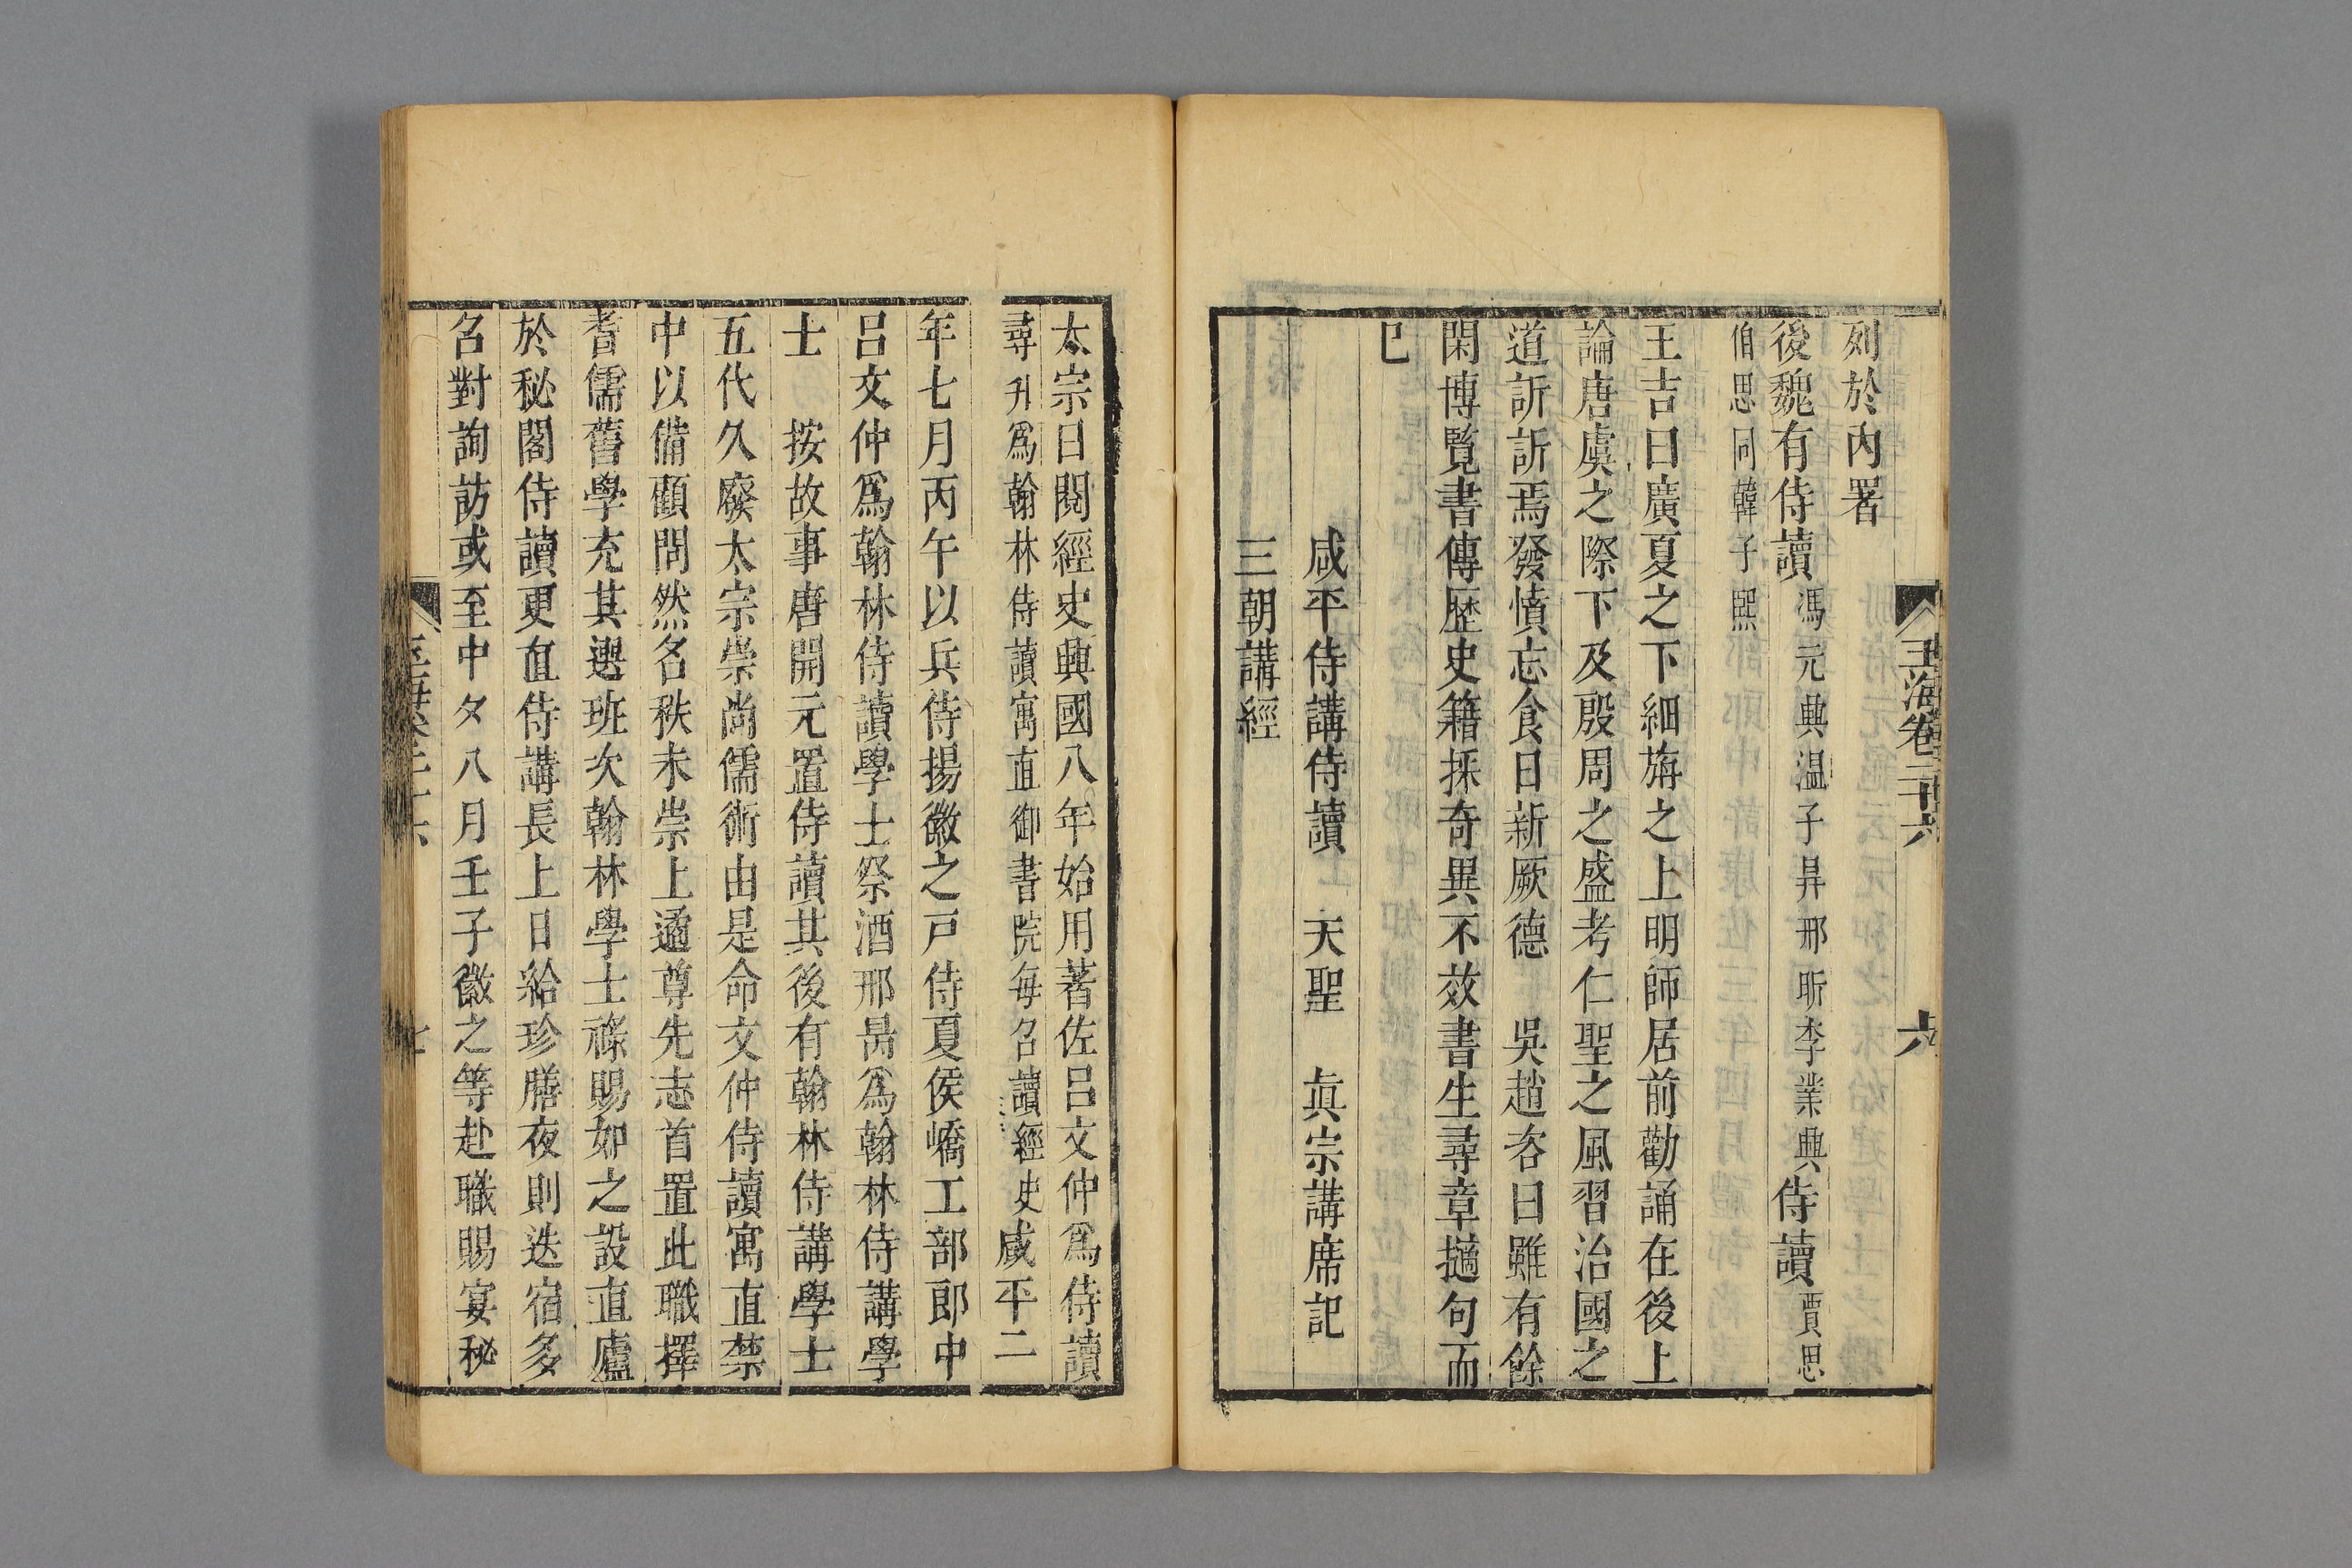 玉海卷二十六
六
列於內署
後魏有侍讀馮元興溫子昇邢昕李業興侍讀賈思
伯思同韓子熙
王吉曰廣夏之下細旃之上明師居前勸誦在後上
論唐虞之際下及殷周之盛考仁聖之風習治國之
道訢訢焉發憤忘食日新厥德　吳趙咨曰雖有餘
閑博覽書傳歷史籍採奇異不效書生尋章擿句而
巳
咸平侍講侍讀　天聖　眞宗講席記
三朝講經
太宗日閱經史興國八年始用著佐呂文仲爲侍讀
尋升爲翰林侍讀寓直御書院每召讀經史咸平二
年七月丙午以兵侍揚徽之戸侍夏侯嶠工部郎中
呂文仲爲翰林侍讀學士祭酒邢昺爲翰林侍講學
士　按故事唐開元置侍讀其後有翰林侍講學士
五代久廢太宗崇尚儒術由是命文仲侍讀寓直禁
中以備顧問然名秩未崇上遹尊先志首置此職擇
耆儒舊學充其選班次翰林學士祿賜如之設直廬
於秘閣侍讀更直侍講長上日給珍膳夜則迭宿多
召對詢訪或至中夕八月壬子徽之等赴職賜宴秘